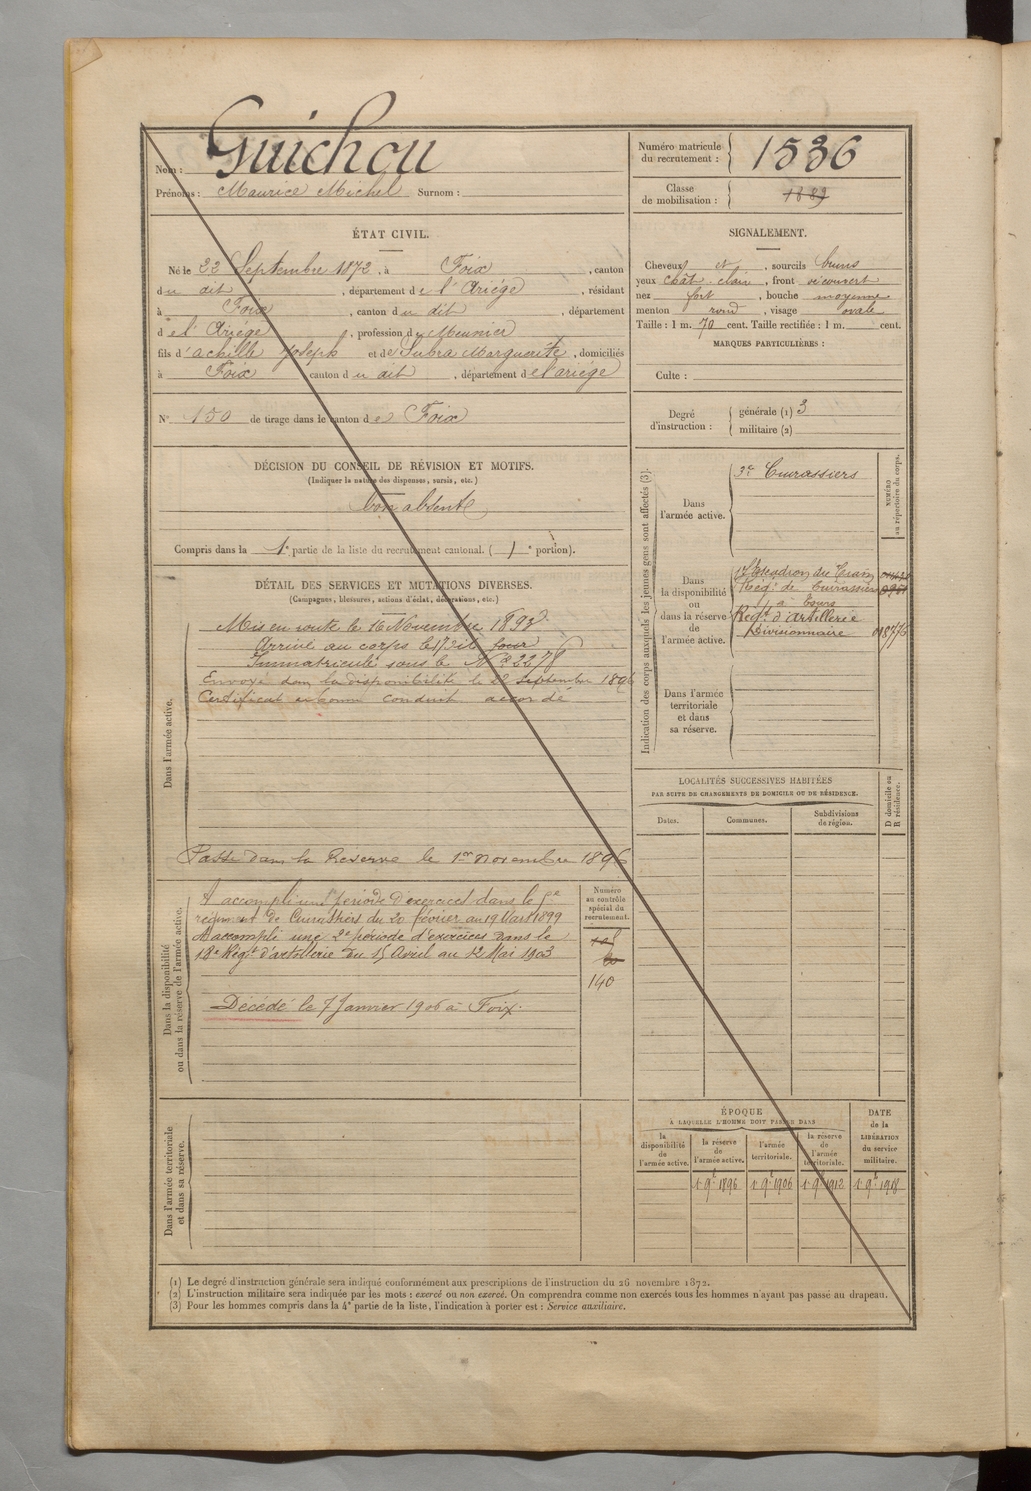 Nom : Guichou
Prénoms : Maurice Michel Surnom :
ÉTAT CIVIL.
Né le 22 Septembre 1872, à Foix, canton
du dit, département de l'Ariége, résidant
à Foix, canton du dit, département
de l'Ariége, profession de Meunier
fils d'achille Joseph et de Subra Marguerite, domiciliés
à Foix canton du dit, département de l'ariége
N° 150 de tirage dans le canton de Foix
DÉCISION DU CONSEIL DE RÉVISION ET MOTIFS.
(Indiquer la nature des dispenses, sursis, etc.)
bon absent
Compris dans la 1e partie de la liste du recrutement cantonal. (1e portion).
DÉTAIL DES SERVICES ET MUTATIONS DIVERSES.
(Campagnes, blessures, actions d'éclat, décorations, etc.)
Dans l'armée active.
Mis en route le 16 Novembre 1893
Arrivé au corps le dit jour
Immatriculé sous le N° 2278
Envoyé dans la disponibilité le 22 septembre 1896
Certificat de bonne conduite accordé
Passé dans la Réserve le 1er novembre 1896
Dans la disponibilité
ou dans la réserve de l'armée active.
A accompli une période d'exercices dans le
régiment de Cuirassiers du 20 février au 19 Mars 1899
A accompli une 2e période d'exercices dans le
18e Régt d'artillerie du 15 Avril au 12 Mai 1903
Décédé le 7 Janvier 1906 à Foix.
Numéro
au contrôle
spécial du
recrutement.
140
Dans l'armée territoriale
et dans sa réserve.
Numéro matricule
du recrutement : 1536
Classe
de mobilisation : 1889
SIGNALEMENT.
Cheveux et, sourcils bruns
yeux chât. clair, front découvert
nez fort, bouche moyenne
menton rond, visage ovale
Taille : 1 m. 70 cent. Taille rectifiée : 1 m. cent.
MARQUES PARTICULIÈRES :
Culte :
Degré
d'instruction :
générale (1) 3
militaire (2)
Indication des corps auxquels les jeunes gens sont affectés (3).
NUMÉRO
au répertoire du corps.
Dans
l'armée active.
3e Cuirassiers
Dans
la disponibilité
ou
dans la réserve
de
l'armée active.
Escadron du Train
Régt de Cuirassiers
à Tours
Régt d'artillerie
Divisionnaire
Dans l'armée
territoriale
et dans
sa réserve.
LOCALITÉS SUCCESSIVES HABITÉES
PAR SUITE DE CHANGEMENTS DE DOMICILE OU DE RÉSIDENCE.
Dates.
Communes.
Subdivisions
de région.
D domicile ou
R résidence.
ÉPOQUE
À LAQUELLE L'HOMME DOIT PASSER DANS
la
disponibilité
de
l'armée active.
la réserve
de
l'armée active.
l'armée
territoriale.
la réserve
de
l'armée
territoriale.
DATE
de la
LIBÉRATION
du service
militaire.
1er 9bre 1896 1er 9bre 1906 1er 9bre 1912 1er 9bre 1918
(1) Le degré d'instruction générale sera indiqué conformément aux prescriptions de l'instruction du 26 novembre 1872.
(2) L'instruction militaire sera indiquée par les mots : exercé ou non exercé. On comprendra comme non exercés tous les hommes n'ayant pas passé au drapeau.
(3) Pour les hommes compris dans la 4e partie de la liste, l'indication à porter est : Service auxiliaire.